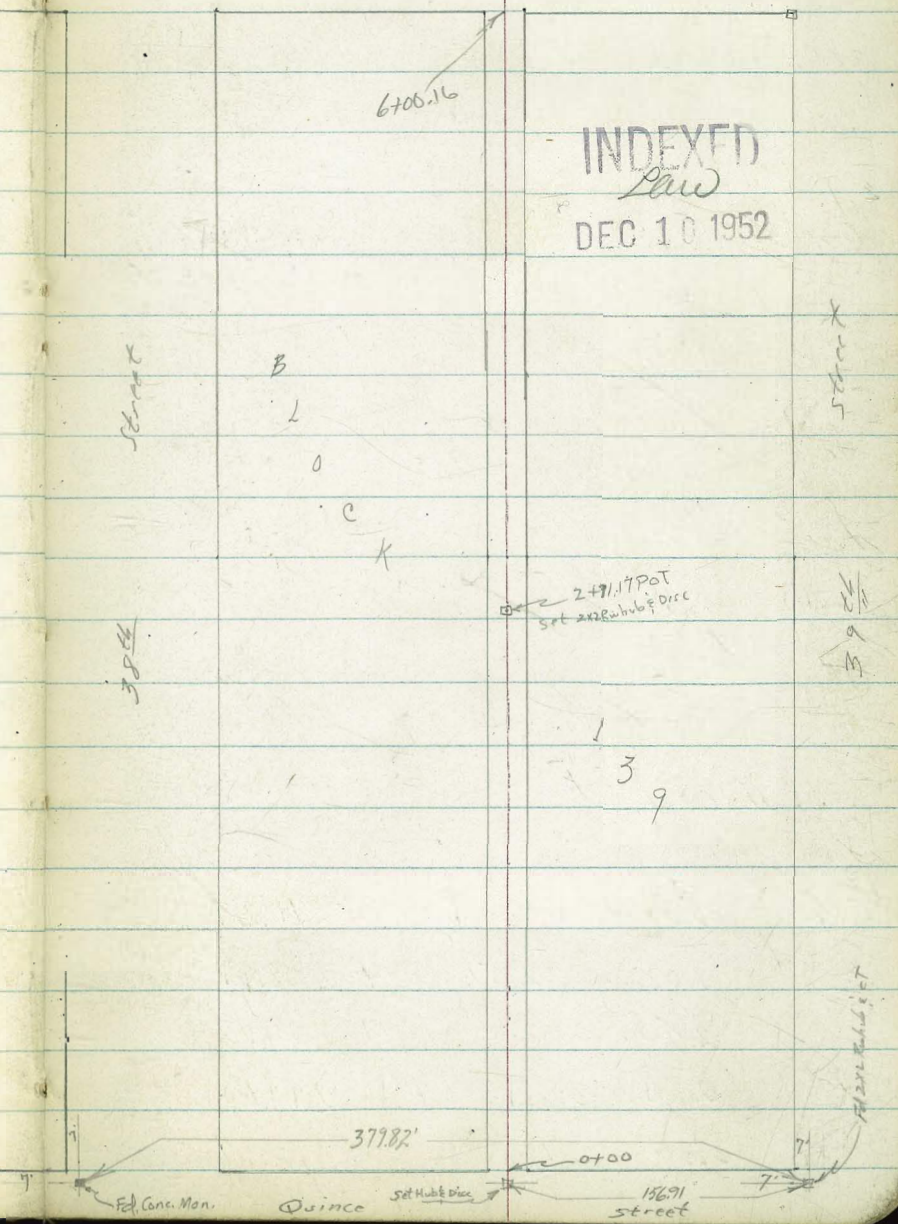 6+00.16
INDEXED
DEC 10 1952
Street
Street
B
L
O
C
K
2+91.17 POT
Set 2x2 Rwhub & Disc
38th
39th
1
3
9
Fd 2x2 Rwhub & CT
379.82'
7'
7'
0+00
7'
7'
Fd. Conc. Mon.
Quince
Set Hub & Disc
156.91
Street